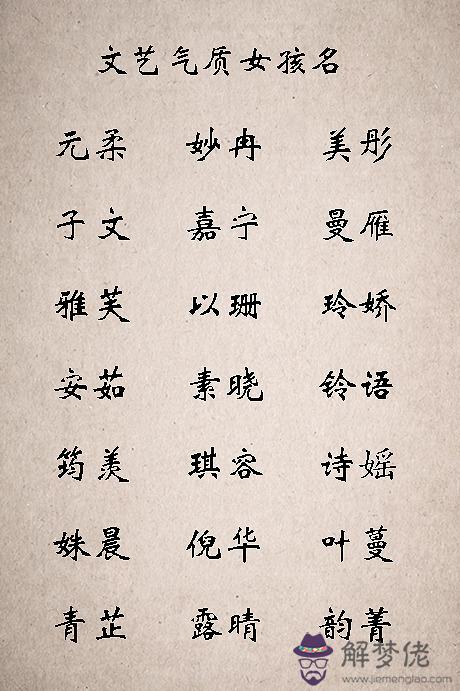 文艺气质女孩名
元柔 妙冉 美彤
子文 嘉宁 曼雁
雅芙 以珊 玲娇
安茹 素晓 铃语
筠羡 琪容 诗婳
姝晨 倪华 叶蔓
青芷 露晴 韵菁
解梦佬
www.jiemenglao.com